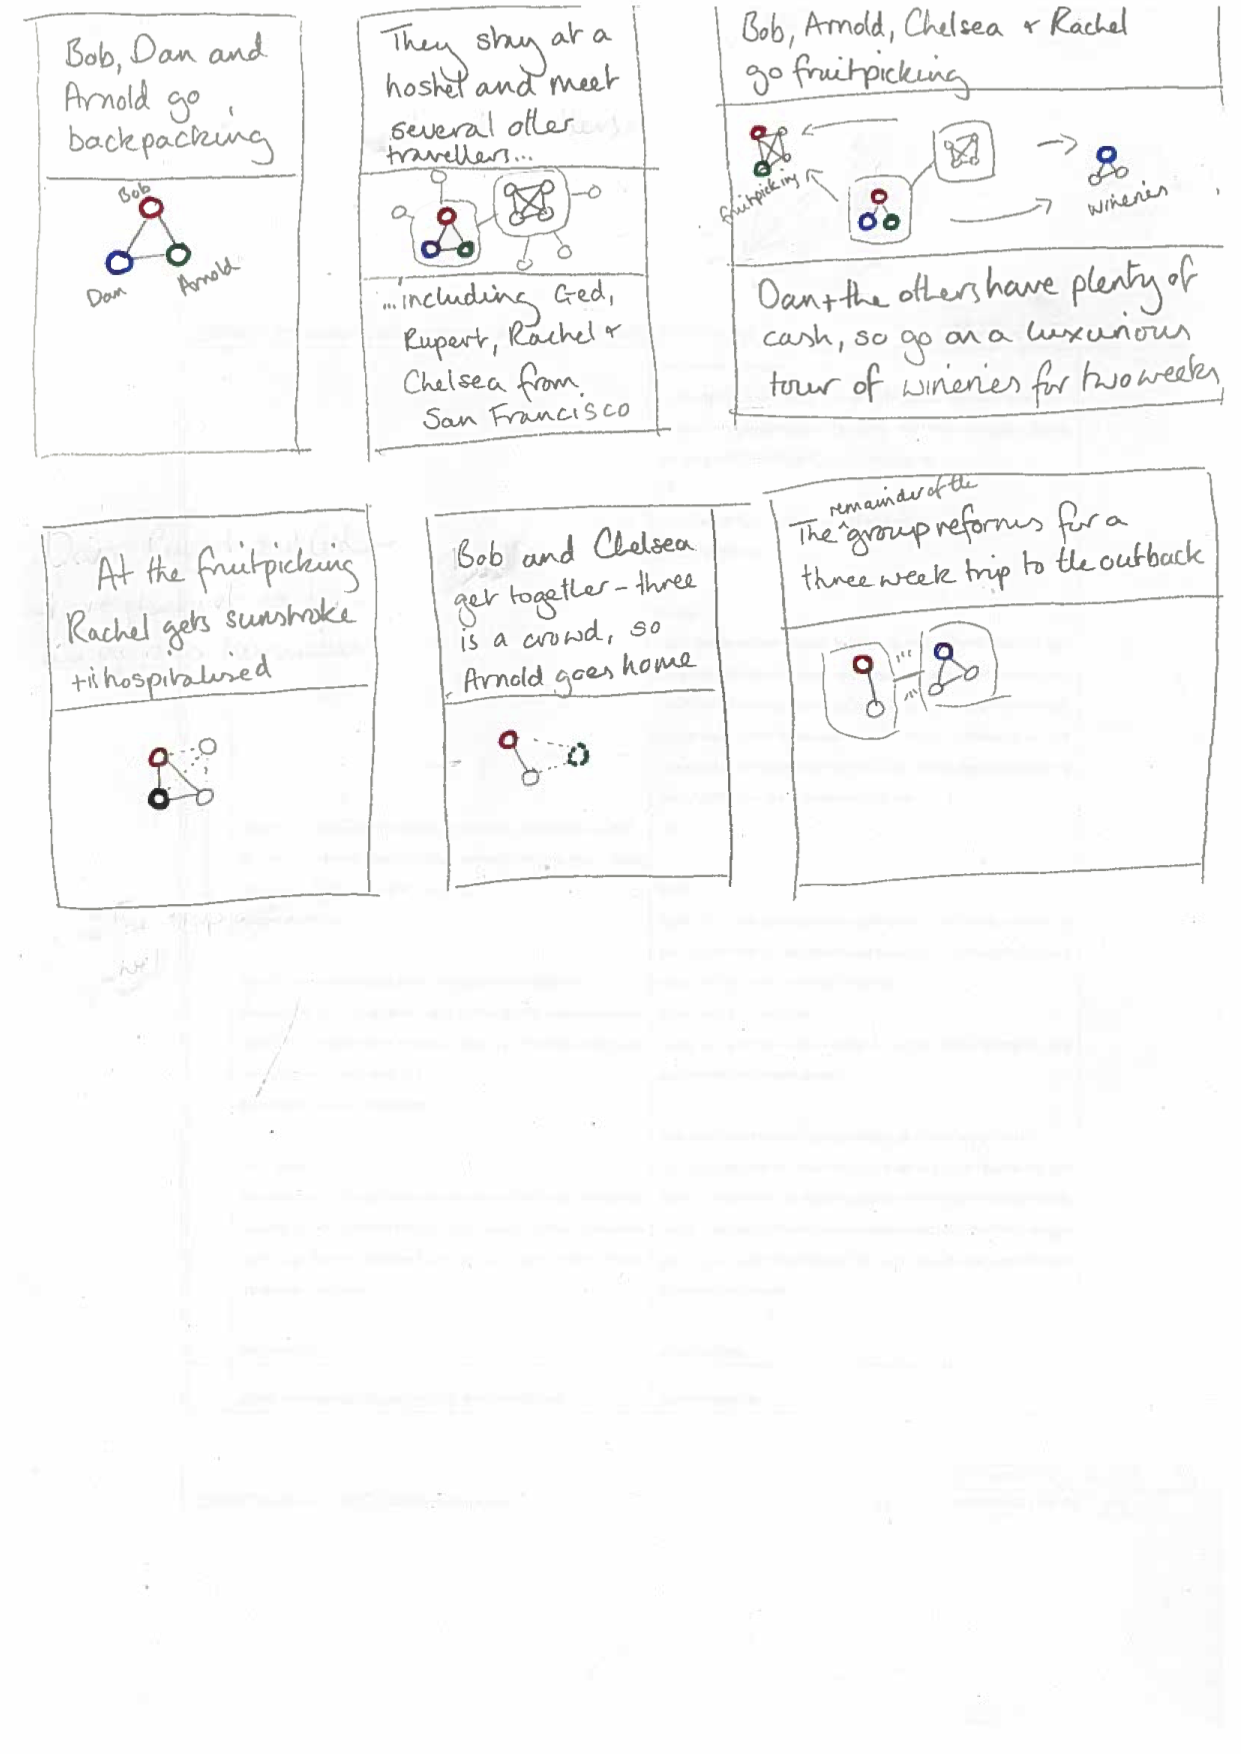 Bob, Dan and
Arnold go
backpacking
Bob
Dan
Arnold
They stay at a
hostel and meet
several other
travellers...
...including Ged,
Rupert, Rachel +
Chelsea from
San Francisco
Bob, Arnold, Chelsea + Rachel
go fruitpicking
fruitpicking
wineries
Dan + the others have plenty of
cash, so go on a luxurious
tour of wineries for two weeks
At the fruitpicking
Rachel gets sunstroke
+ is hospitalised
Bob and Chelsea
get together - three
is a crowd, so
Arnold goes home
remainder of the
The ^ group reforms for a
three week trip to the outback